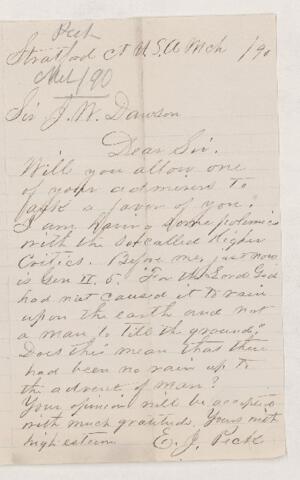 Peck
Stratford Ct U.S.A Mch /90
Mch/90
Sir J. W. Dawson
Dear Sir.
Will you allow one
of your admirers to
ask a favor of you?
I am having some polemics
with the so-called Higher
Critics. Before me, just now
is Gen II. 5. "For the Lord God
had not caused it to rain
upon the earth and not
a man to till the ground."
Does this mean that there
had been no rain up to
the advent of man?
Your opinion will be accepted
with much gratitude. Yours with
high esteem E. J. Peck